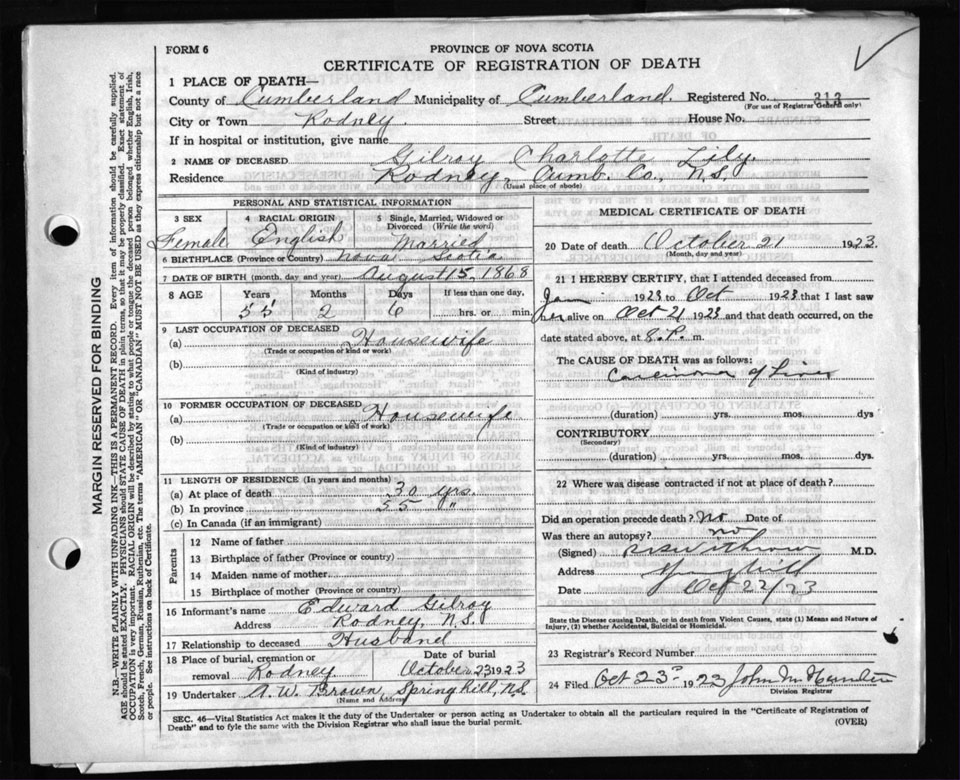 FORM 6
PROVINCE OF NOVA SCOTIA
CERTIFICATE OF REGISTRATION OF DEATH
1 PLACE OF DEATH—
County of Cumberland Municipality of Cumberland. Registered No. 313
(For use of Registrar General only)
City or Town Rodney. Street House No.
If in hospital or institution, give name
2 NAME OF DECEASED Gilroy Charlotte Lily.
Residence Rodney, Cumb. Co., N.S.
(Usual place of abode)
PERSONAL AND STATISTICAL INFORMATION
3 SEX 4 RACIAL ORIGIN 5 Single, Married, Widowed or Divorced (Write the word)
Female English Married
6 BIRTHPLACE (Province or Country) Nova Scotia
7 DATE OF BIRTH (month, day, and year) August 15, 1868
8 AGE Years Months Days If less than one day,
55 2 6 hrs. or min.
9 LAST OCCUPATION OF DECEASED
(a) Housewife
(Trade or occupation or kind of work)
(b)
(Kind of industry)
10 FORMER OCCUPATION OF DECEASED
(a) Housewife
(Trade or occupation or kind of work)
(b)
(Kind of industry)
11 LENGTH OF RESIDENCE (In years and months)
(a) At place of death 30 yrs.
(b) In province 55 "
(c) In Canada (if an immigrant)
Parents
12 Name of father
13 Birthplace of father (Province or country)
14 Maiden name of mother
15 Birthplace of mother (Province or country)
16 Informant's name Edward Gilroy
Address Rodney, N.S.
17 Relationship to deceased Husband
18 Place of burial, cremation or removal Rodney Date of burial October 23 1923
19 Undertaker A. W. Brown, Springhill, N.S.
(Name and Address)
MEDICAL CERTIFICATE OF DEATH
20 Date of death October 21 1923
(Month, day and year)
21 I HEREBY CERTIFY, that I attended deceased from
Jan 1923 to Oct 1923 that I last saw
her alive on Oct 21 1923 and that death occurred, on
date stated above, at 8.P. m.
The CAUSE OF DEATH was as follows:
Carcinoma of Liver
(duration) yrs. mos. dys
CONTRIBUTORY
(Secondary)
(duration) yrs. mos. dys.
22 Where was disease contracted if not at place of death?
Did an operation precede death? No Date of
Was there an autopsy? no
(Signed) M.D.
Address Springhill
Date Oct 22/23
State the Disease causing Death, or in death from Violent Causes, state (1) Means and Nature of Injury, (2) whether Accidental, Suicidal or Homicidal.
23 Registrar's Record Number
24 Filed Oct 23rd 1923 John M
Division Registrar
SEC. 46—Vital Statistics Act makes it the duty of the Undertaker or person acting as Undertaker to obtain all the particulars required in the "Certificate of Registration of
Death" and to fyle the same with the Division Registrar who shall issue the burial permit.
(OVER)
MARGIN RESERVED FOR BINDING
N.B.—WRITE PLAINLY WITH UNFADING INK—THIS IS A PERMANENT RECORD. Every item of information should be carefully supplied.
AGE should be stated EXACTLY. PHYSICIANS should STATE CAUSE OF DEATH in plain terms, so that it may be properly classified. Exact statement of
OCCUPATION is very important. RACIAL ORIGIN will be described by stating to what people or tongue the deceased person belonged whether English, Irish,
Scotch, French, German, Russian, Ruthenian, etc. The terms "AMERICAN" OR "CANADIAN" MUST NOT BE USED as they express citizenship but not a race
or people. See instructions on back of Certificate.